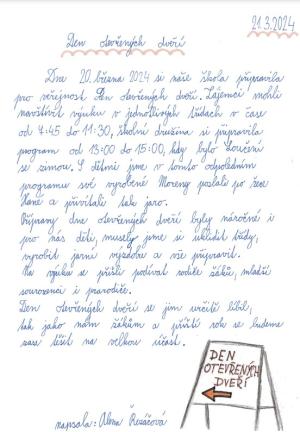 21.3.2024
Den otevřených dveří
Dne 20. března 2024 si naše škola připravila
pro veřejnost Den otevřených dveří. Zájemci mohli
navštívit výuku v jednotlivých třídách v čase
od 7:45 do 11:30, školní družina si připravila
program od 13:00 do 15:00, kdy bylo loučení
se zimou. S dětmi jsme v tomto odpoledním
programu své vyrobené Moreny poslali po řece
Hané a přivítali tak jaro.
Přípravy dne otevřených dveří byly náročné i
pro nás děti, musely jsme si uklidit třídy,
vyrobit jarní výzdobu a vše připravit.
Na výuku se přišli podívat rodiče žáků, mladší
sourozenci i prarodiče.
Den otevřených dveří se jim určitě líbil,
tak jako nám žákům a příští rok se budeme
zase těšit na velkou účast.
DEN
OTEVŘENÝCH
DVEŘÍ
napsala: Alena Řezáčová